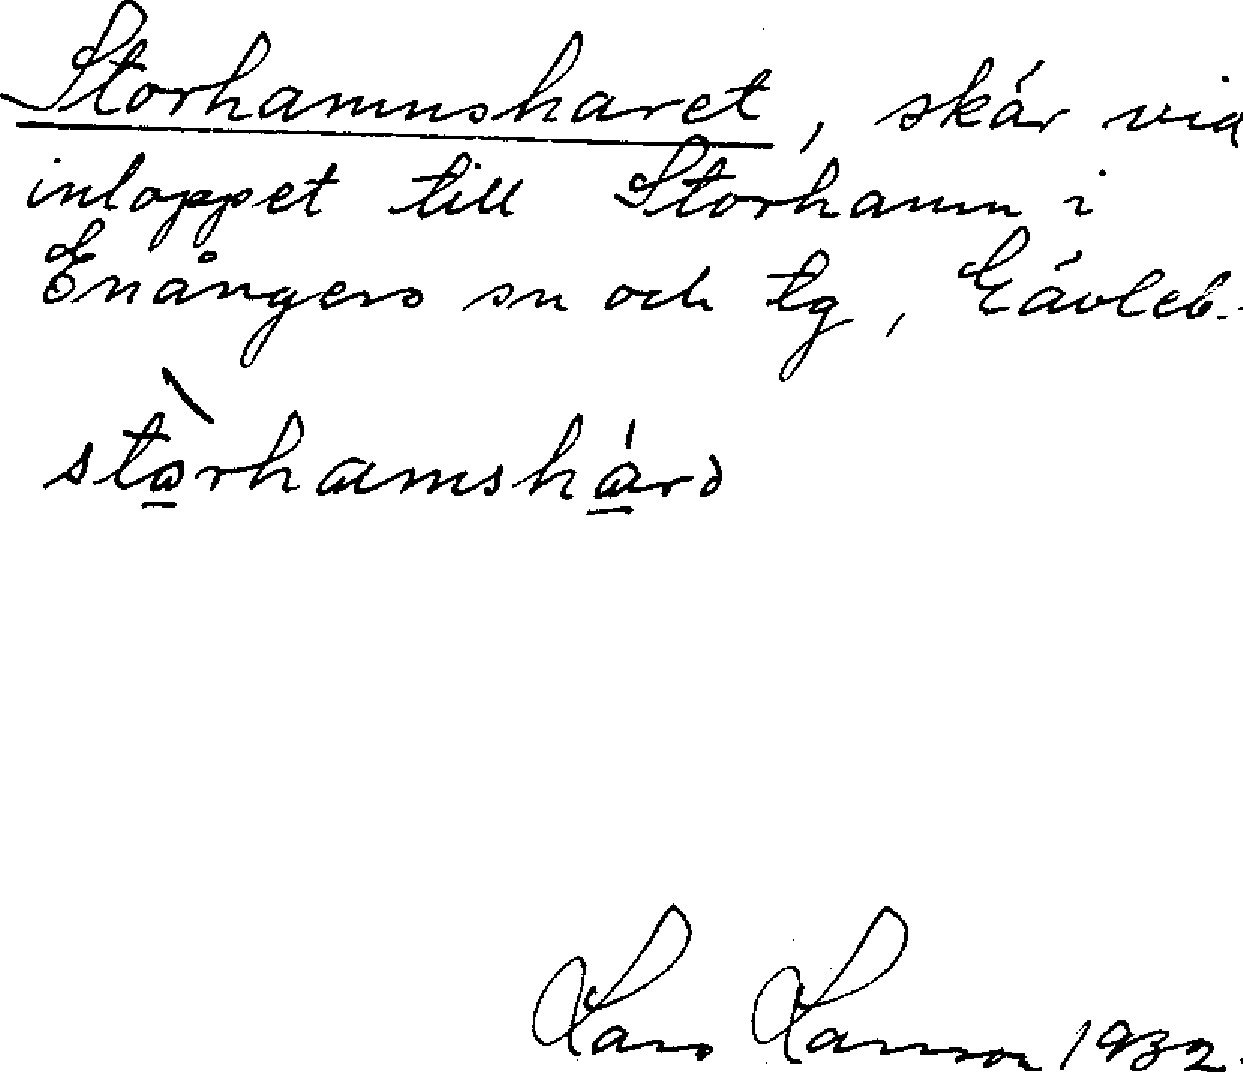 Storhamnsharet, skär vid
inloppet till Storhamn i
Enångers sn och tg, Gävleb.
stòrhamshárə
Lars Larsson 1932.